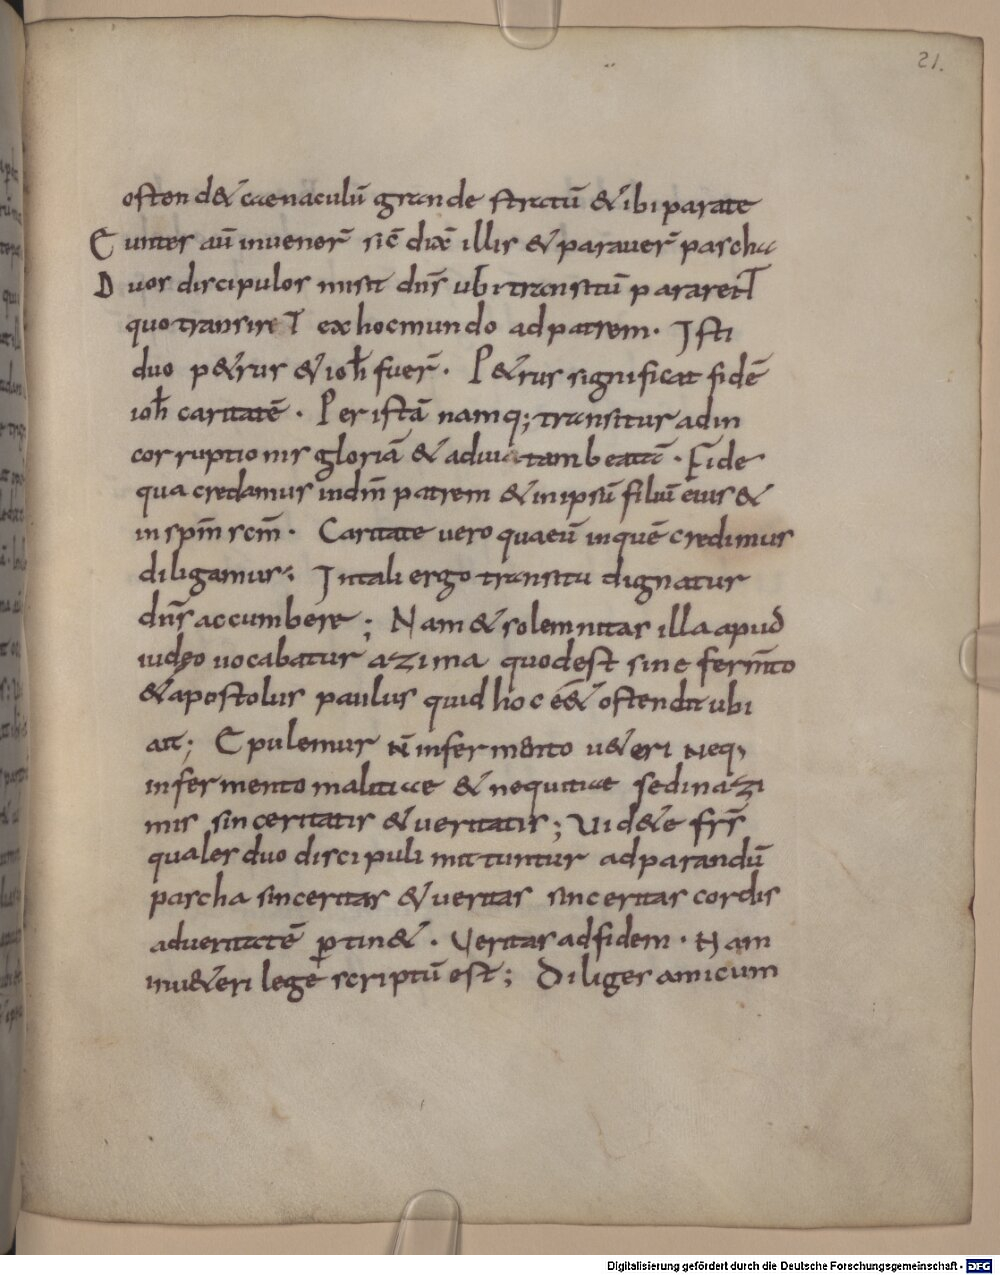 21.
ostend& caenaculū grande stratū & ibi parate
Euntes aū inuener̄ sic̄ dix̄ illis & parauer̄ pascha
Duos discipulos misit dn̄s ubi transitū pararent
quo transiret ex hoc mundo ad patrem. Isti
duo p&rus & ioh̄ fuer̄. P&rus significat fidē
ioh̄ caritatē. Per istā namq; transitur ad in
corruptionis gloriā & ad uitam beatā. Fide
qua credamus in dm̄ patrem & in ipsū filiū eius &
in spm̄ scm̄. Caritate uero qua eū in quē credimus
diligamus; In tali ergo transitu dignatur
dn̄s accumbere; Nam & solemnitas illa apud
iudeo uocabatur azima quod est sine ferm̄to
& apostolus paulus quid hoc ē& ostendit ubi
ait; Epulemur N̄ in fermento u&eri neq;
in fermento malitiae & nequitiae sed in azi
mis sinceritatis & ueritatis; Uid&e frs̄
quales duo discipuli mittuntur ad parandū
pascha sinceritas & ueritas sinceritas cordis
ad ueritatē ꝑtin&. Veritas ad fidem. Nam
in u&eri lege scriptū est; Diliges amicum
Digitalisierung gefördert durch die Deutsche Forschungsgemeinschaft - DFG